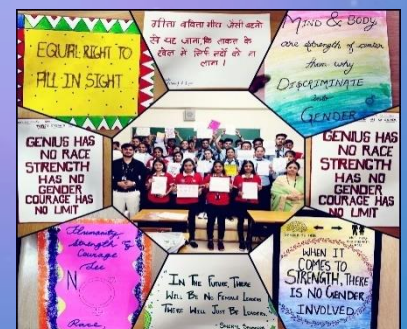 EQUAL RIGHT TO
ALL IN SIGHT
गीता बबिता गीत जैसी बहनो
से यह जाना, कि ताकत के
खेल में सिर्फ मर्दो का न
नाम।
MIND & BODY
are strength of center
then why
DISCRIMINATE
into
GENDER
GENIUS HAS
NO RACE
STRENGTH
HAS NO
GENDER
COURAGE HAS
NO LIMIT
GENIUS HAS
NO RACE
STRENGTH
HAS NO
GENDER
COURAGE HAS
NO LIMIT
Humanity
Strength &
Courage
See
NO
Race
"IN THE FUTURE, THERE
WILL BE NO FEMALE LEADERS
THERE WILL JUST BE LEADERS."
WHEN IT
COMES TO
STRENGTH, THERE
IS NO GENDER
INVOLVED